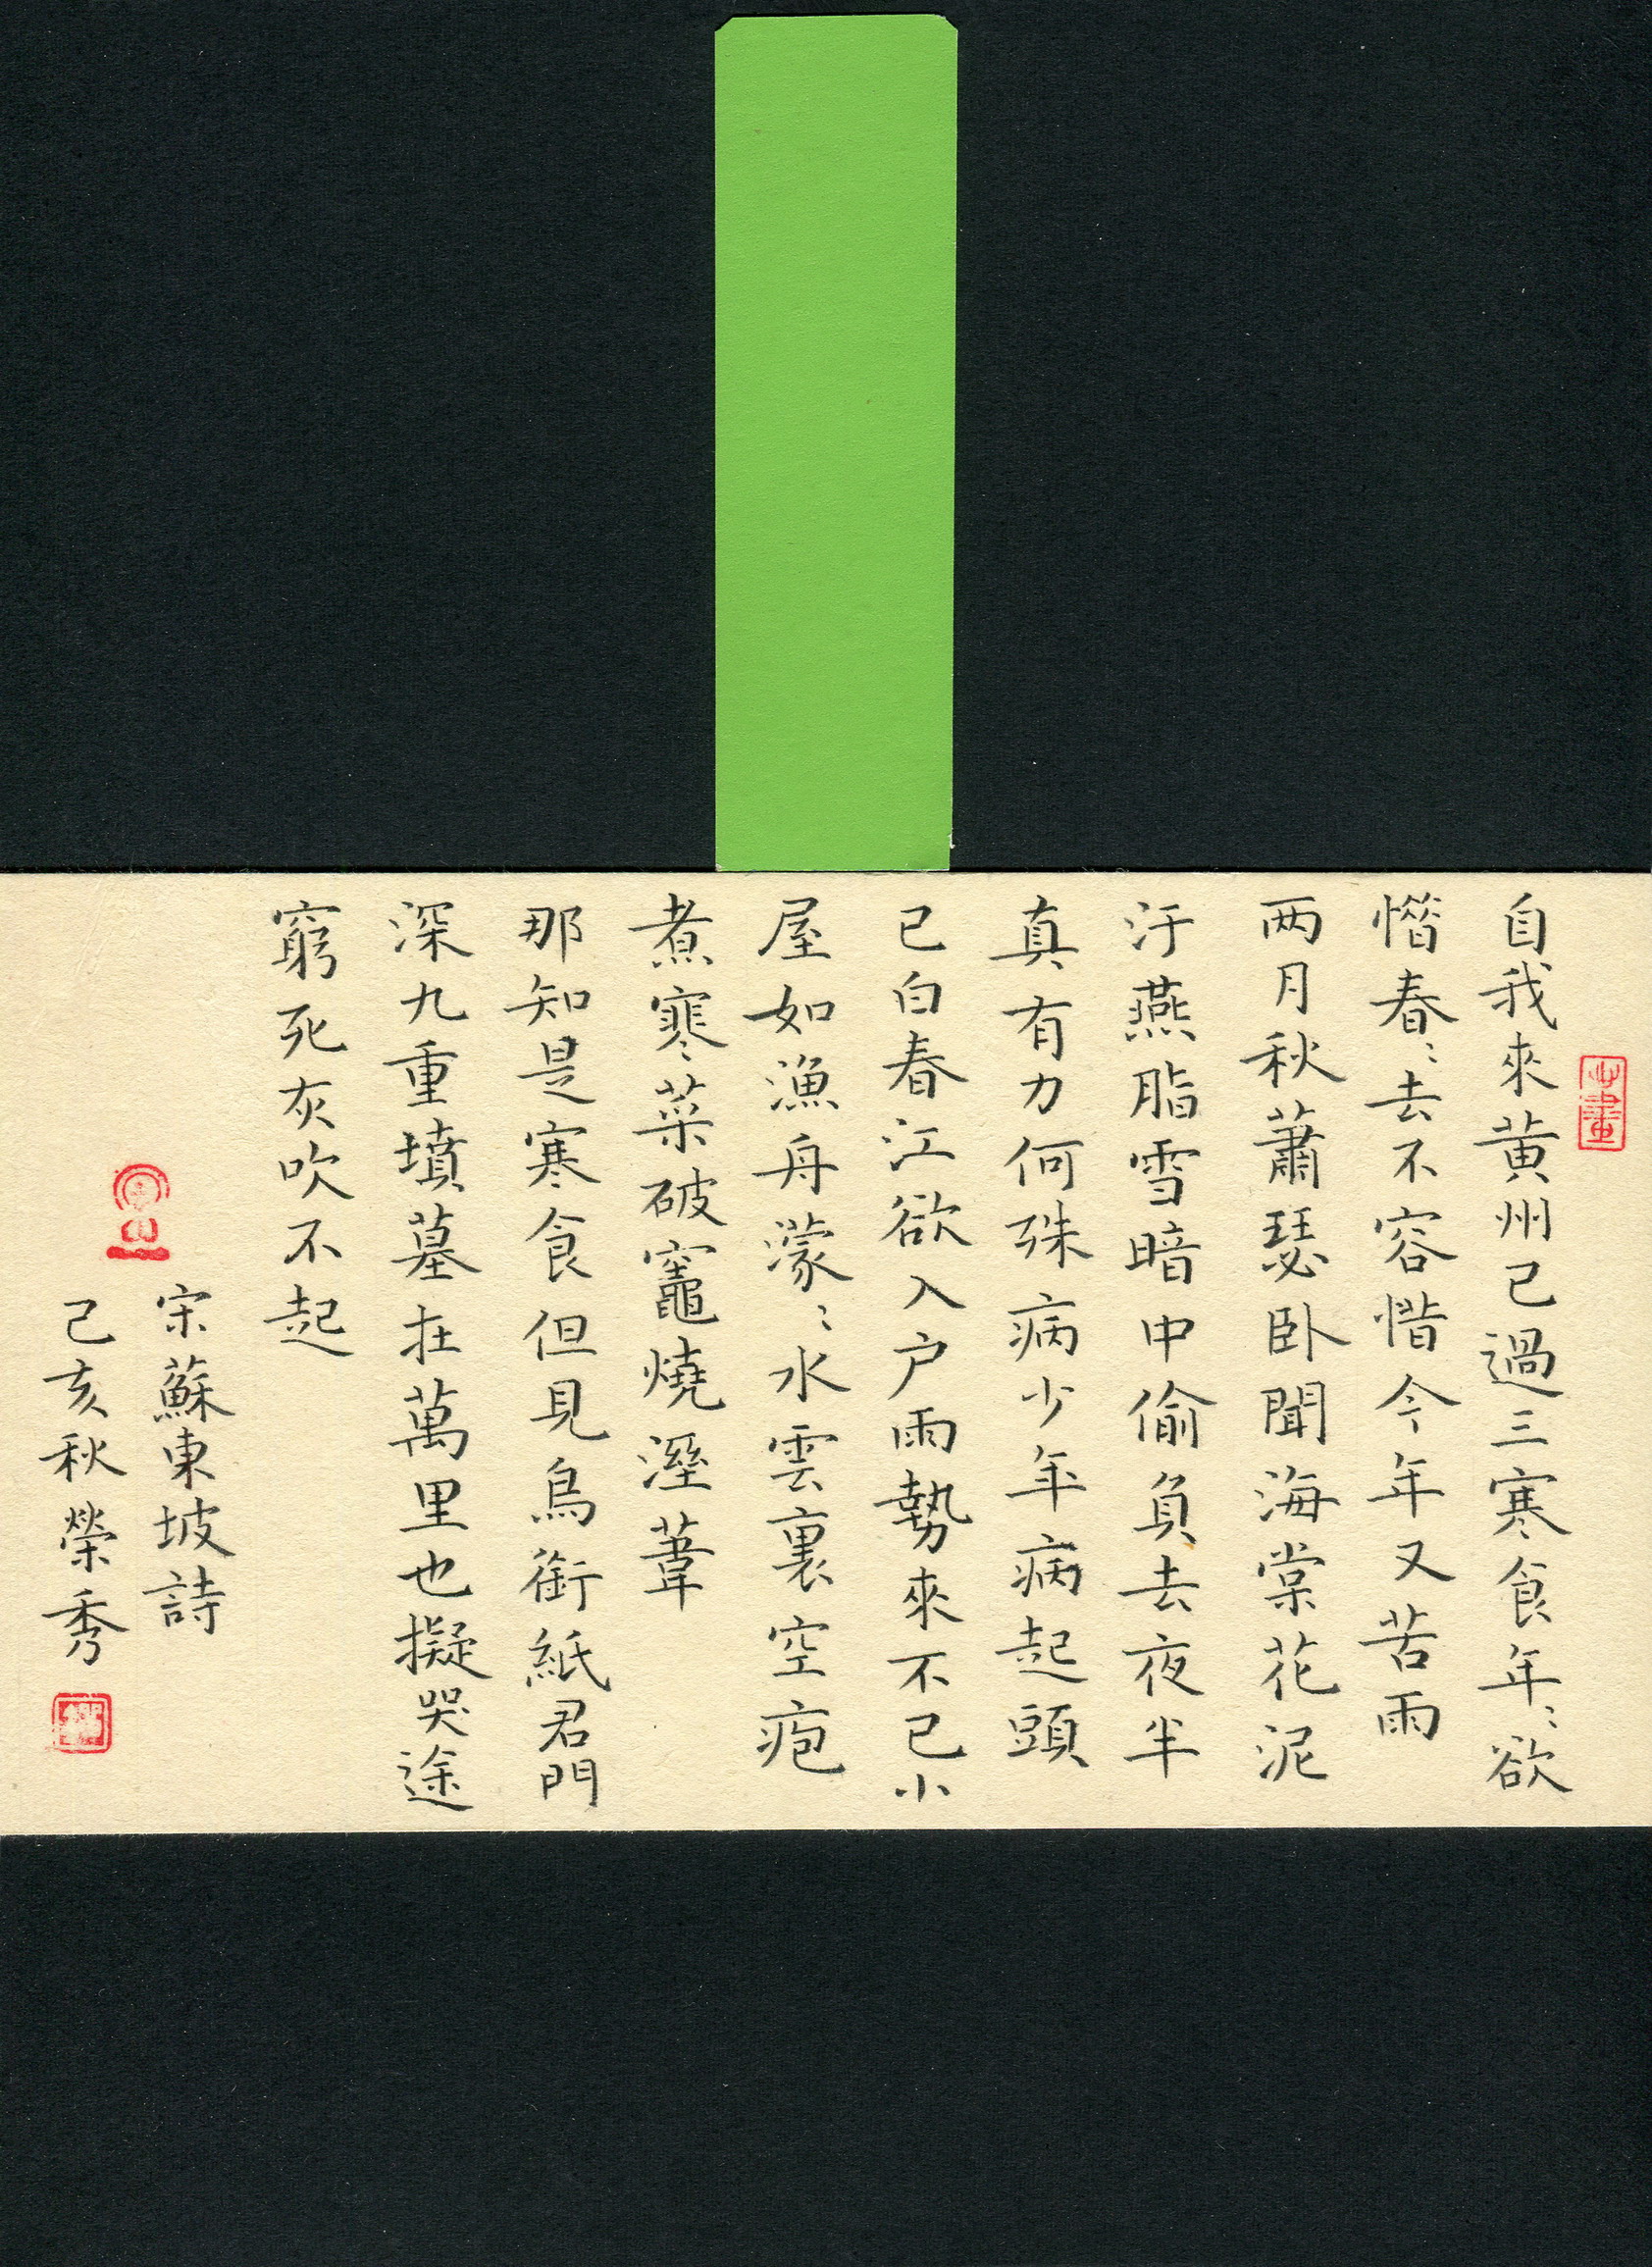 自我來黃州已過三寒食年〻欲
惜春〻去不容惜今年又苦雨
两月秋蕭瑟卧聞海棠花泥
汙燕脂雪暗中偷負去夜半
真有力何殊病少年病起頭
已白春江欲入户雨勢來不已小
屋如漁舟濛〻水雲裏空疱
煮寒菜破竈燒溼葦
那知是寒食但見烏銜紙君門
深九重墳墓在萬里也擬哭途
窮死灰吹不起
宋蘇東坡詩
己亥秋榮秀